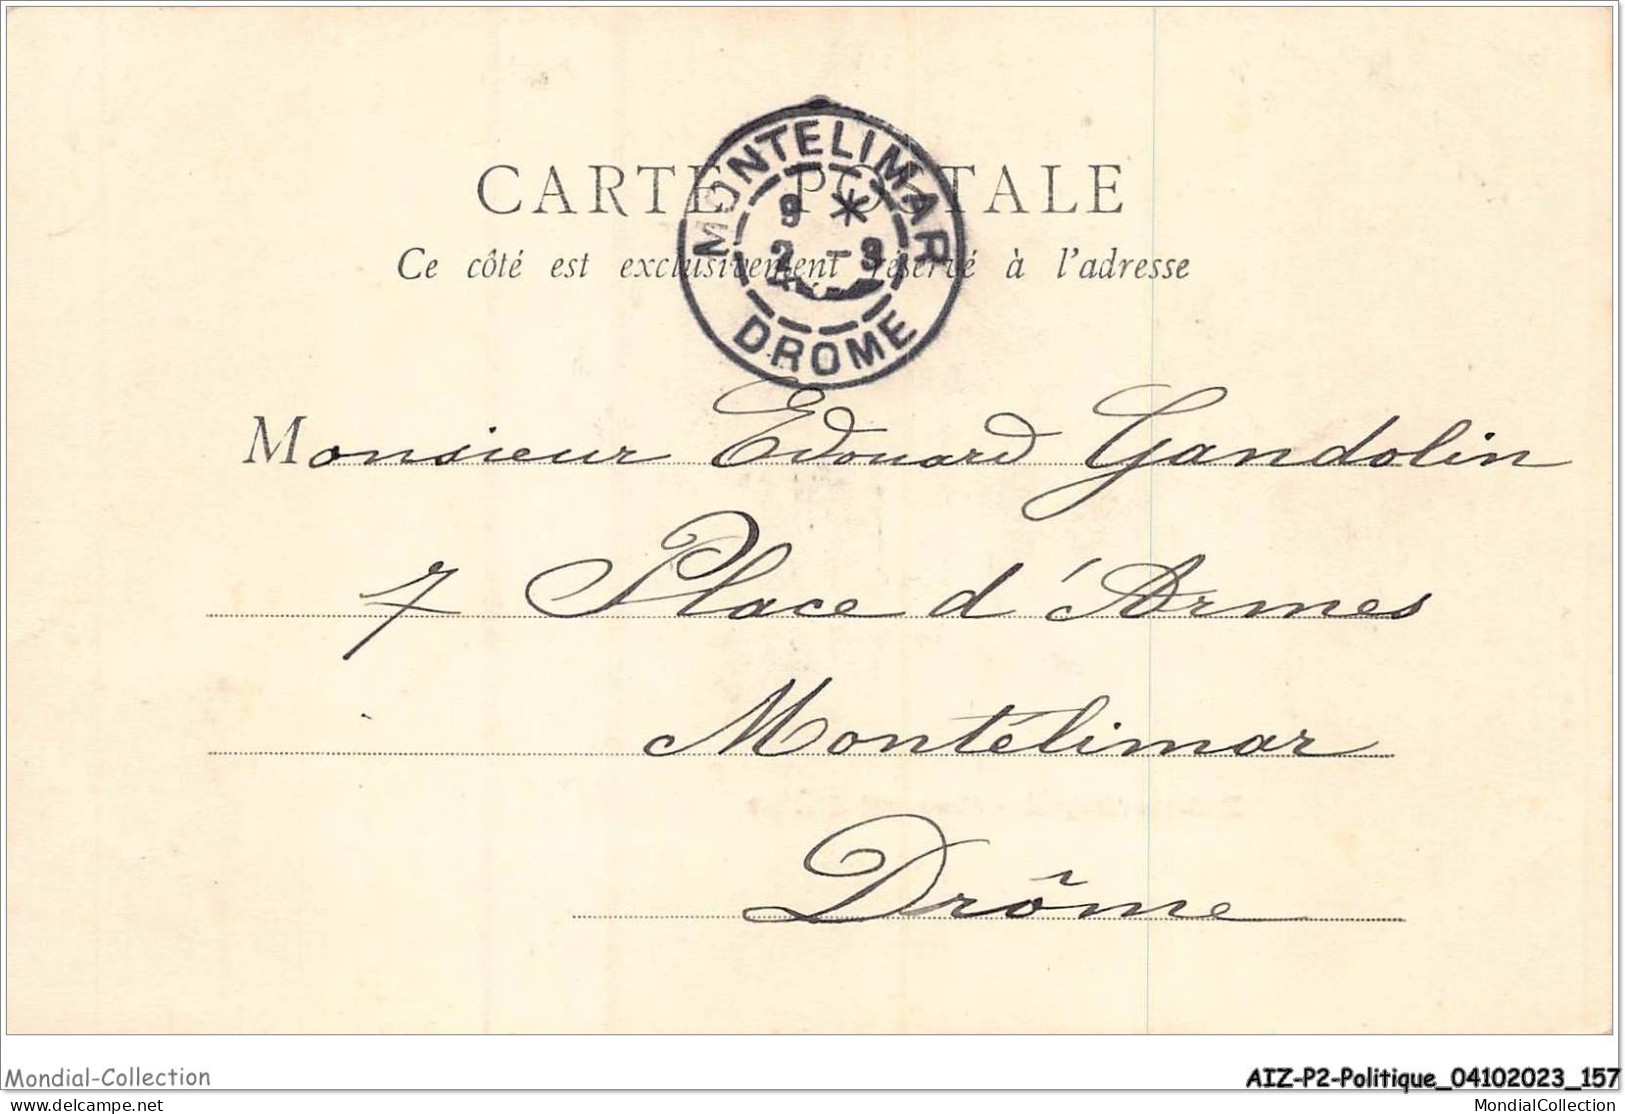 MONTELIMAR
CARTE POSTALE
9 *
2 - 9
Ce côté est exclusivement réservé à l'adresse
DROME
Monsieur Edouard Gandolin
7 Place d'Armes
Montélimar
Drôme
Mondial-Collection
AIZ-P2-Politique_04102023_157
delcampe.net
MondialCollection